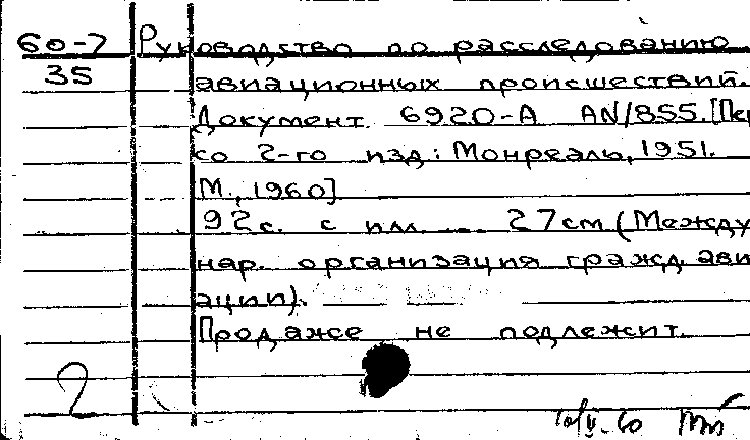 60-7 Руководство по расследованию
35 авиационных происшествий.
Документ 6920-А AN/855. [Пер
со 2-го изд: Монреаль, 1951.
М., 1960]
92 с. с илл. 27 см (Между
нар. организация гражд. ави
ации).
Продаже не подлежит.
2